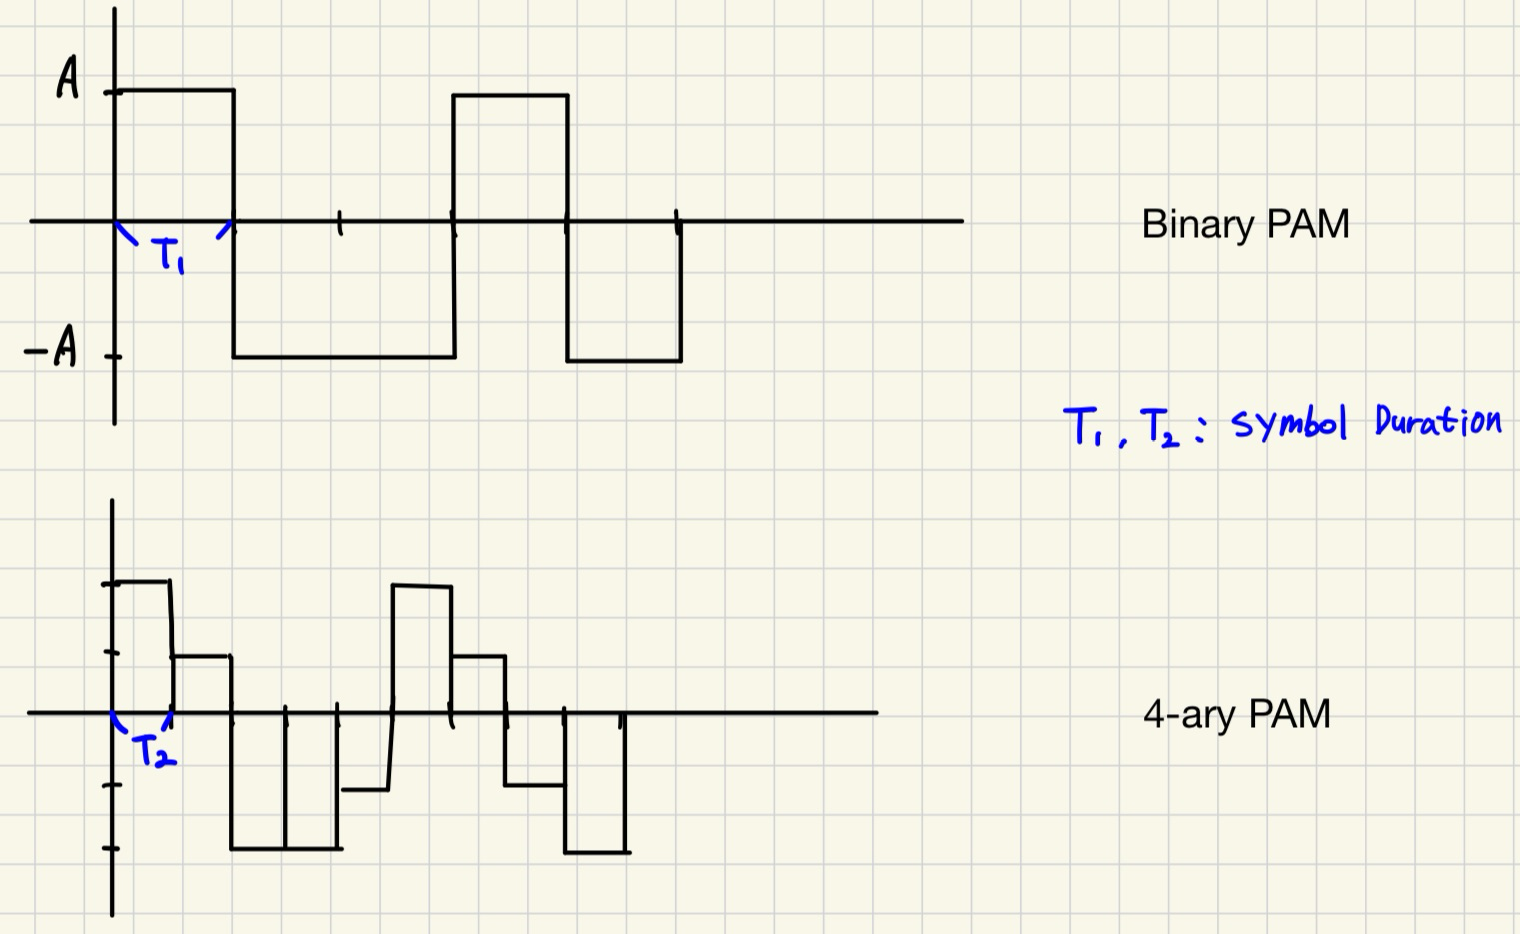 A
T₁
Binary PAM
-A
T₁, T₂: symbol Duration
T₂
4-ary PAM